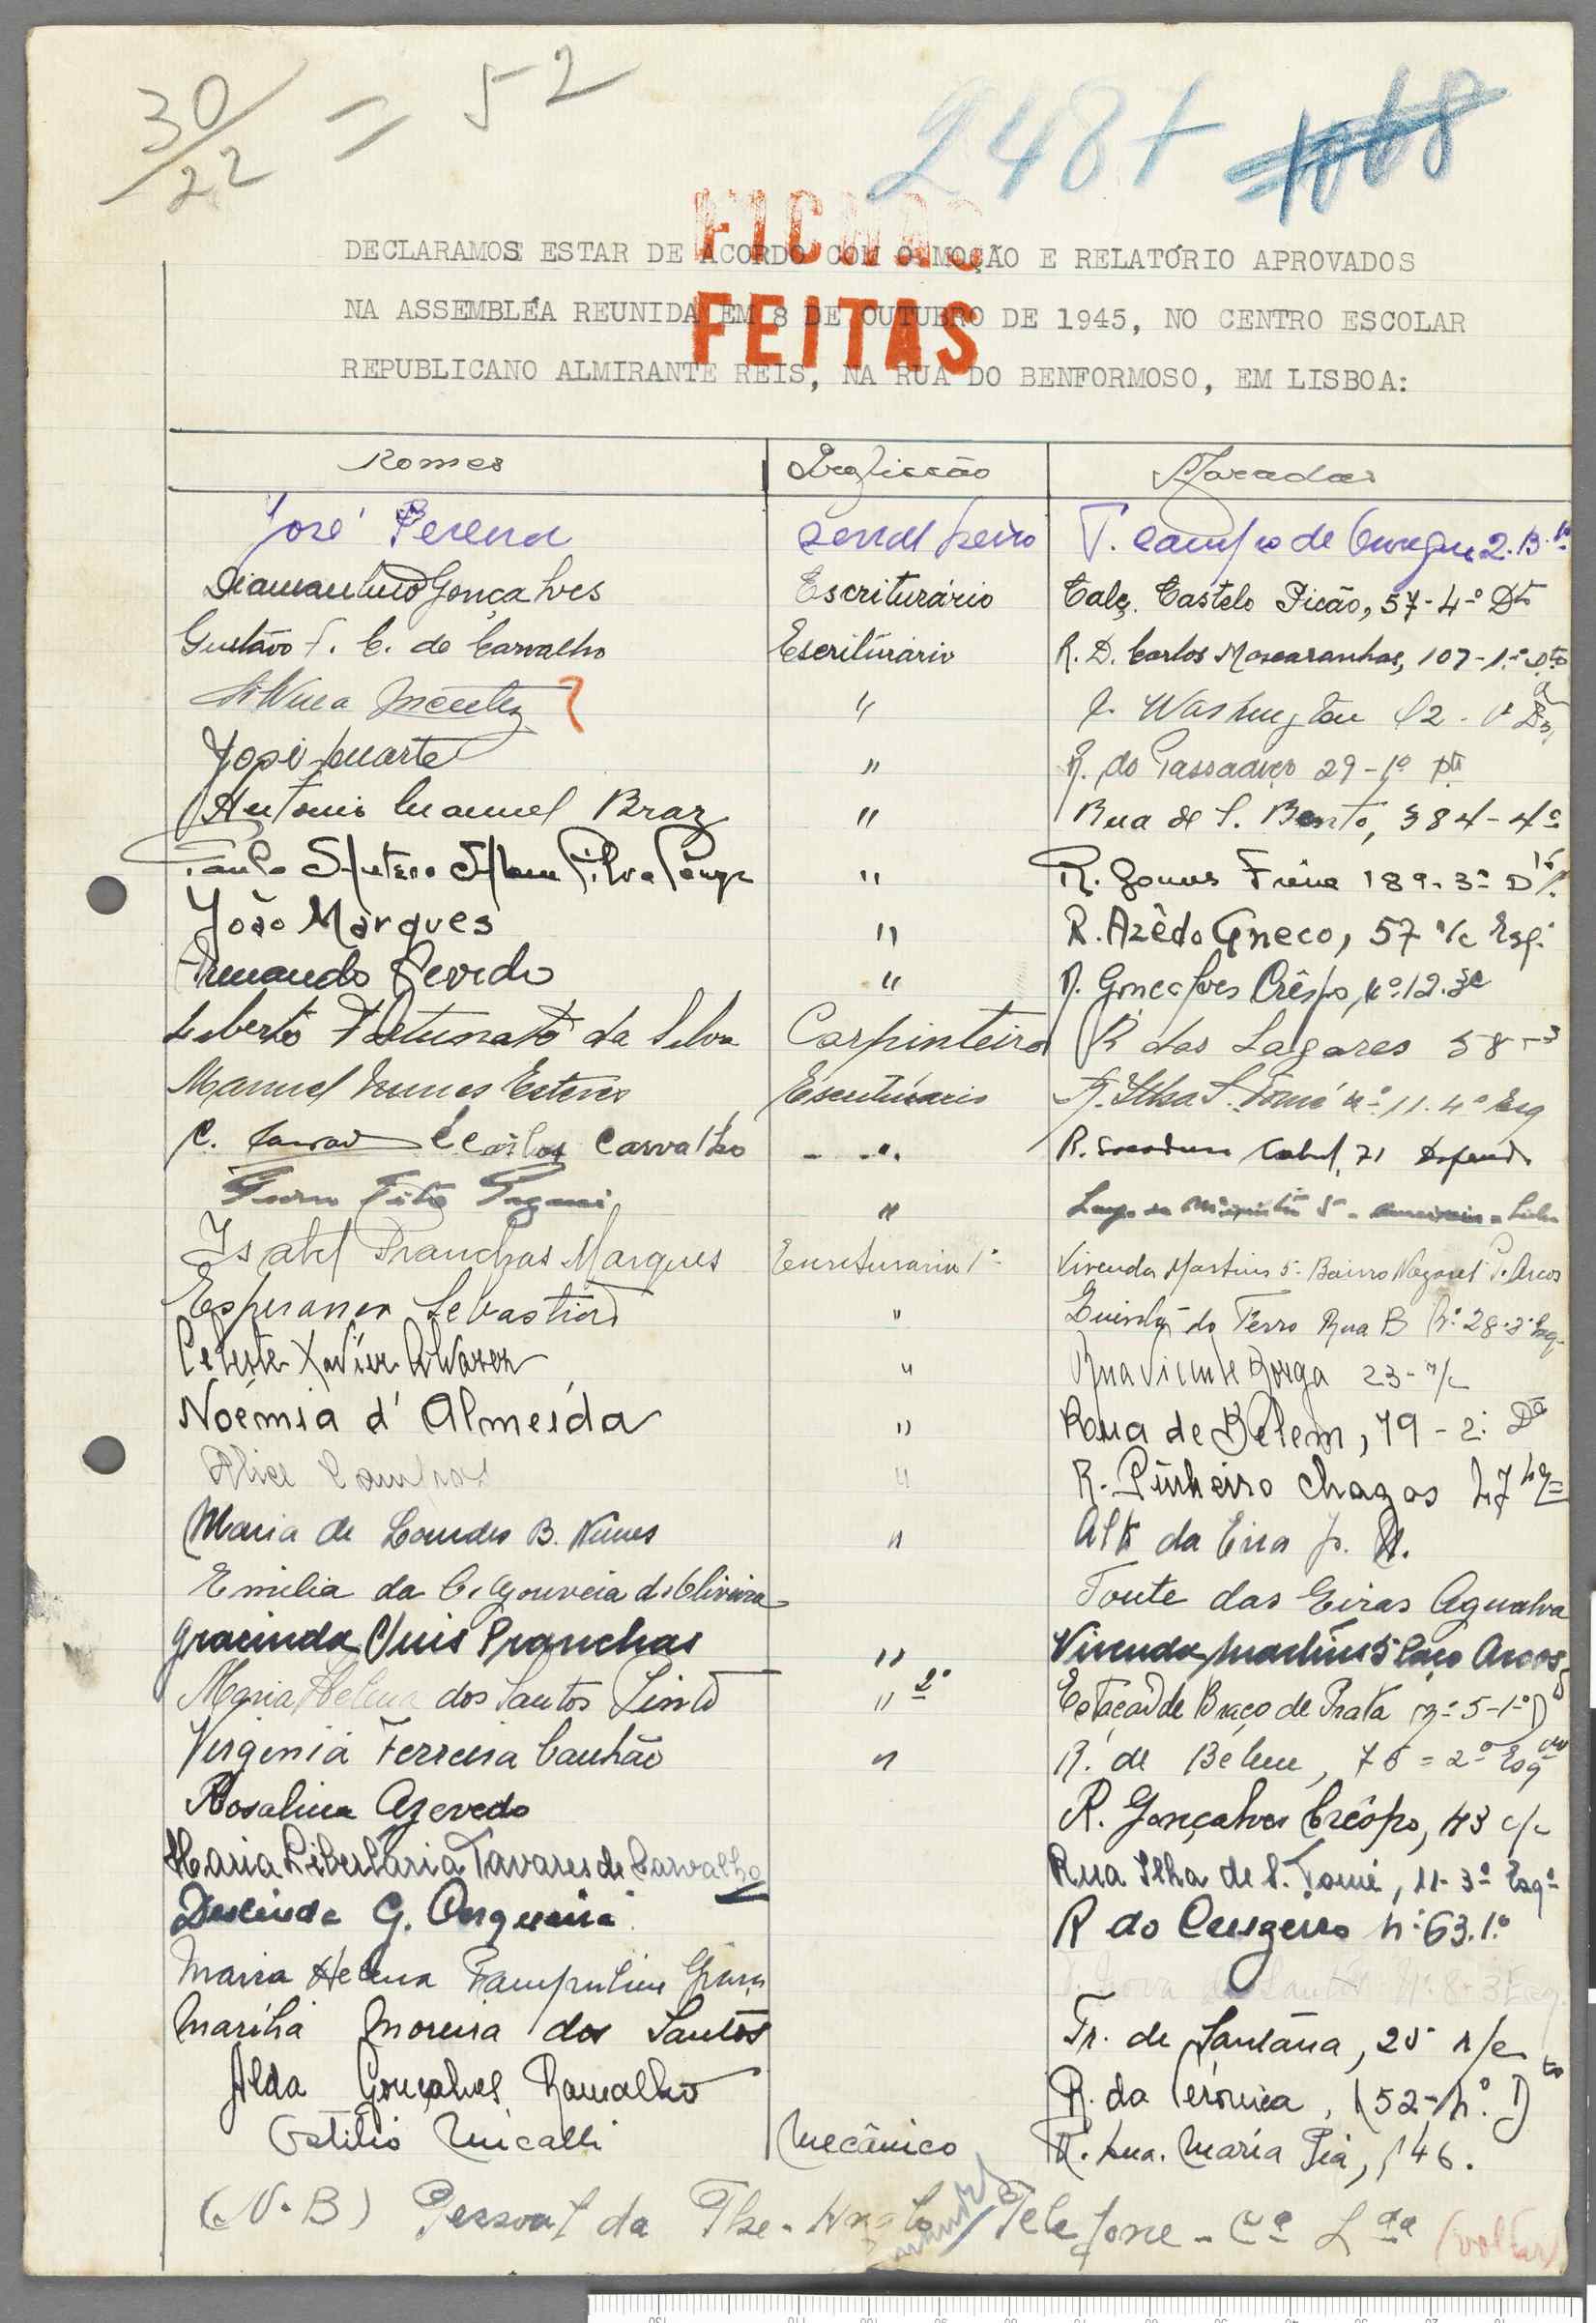 30/22 = 52
2487 1068
FICHAS
FEITAS
DECLARAMOS ESTAR DE ACORDO COM O MOÇÃO E RELATÓRIO APROVADOS
NA ASSEMBLÉA REUNIDA EM 8 DE OUTUBRO DE 1945, NO CENTRO ESCOLAR
REPUBLICANO ALMIRANTE REIS, NA RUA DO BENFORMOSO, EM LISBOA:
Nomes Profissão Moradas
José Pereira serralheiro T. Campo de 2.B.
Diamantino Gonçalves Escriturário Calç. Castelo Picão, 57-4º Dto
Gustavo F. C. de Carvalho Escriturário R. D. Carlos Mascaranhas, 107-1º Dto
Mentez ? " Washington
José Duarte " R. do Passadiço 29-1º
Antonio Manuel Braz " Rua de S. Bento, 384-4º
Paulo Silva " R. Gomes Freire 189-3º D
João Marques " R. Azêdo Gneco, 57 r/c Esq.
Armando " R. Gonçalves Crêspo, nº 12.
Liberto Fortunato da Silva Carpinteiro R dos Lagares 58-3
Manuel Nunes Esteves Escriturario R. Ilha S. Tomé nº 11.4º Esq
C. Carlos Carvalho " R. Cabral, 71
"
Isabel Pranchas Marques Escrituraria 1ª Vivenda Martins 5- Bairro Nazaret P. Arcos
Esperança Sebastião " Quinta do Ferro Rua B Nº 28-2º Esq.
Celeste Xavier " Rua Vicente Borga 23-r/c
Noémia d'Almeida " Rua de Belem, 79-2º Dº
Alice Campos " R. Pinheiro Chagas 27
Maria de Lourdes B. Nunes " Alto da Eira
Emilia da C. Gouveia d'Oliveira Fonte das Eiras Agualva
Gracinda Pranchas " Vivenda Martins 5 Paço Arcos
Maria Helena dos Santos Pinto " 2ª Estação de Braço de Prata nº 5-1º D
Virginia Ferreira Canhão " R. de Belem, 76=2º Esq
Rosalina Azevedo R. Gonçalves Crêspo, 43 c/c
Maria Libertária Tavares de Carvalho Rua Ilha de S. Tomé, 11-3º Esqº
Deolinda G. R do nº 63.1º
Maria Helena Nova de Santo Nº 8-3 Esq.
Marília Moreira dos Santos Tr. de Santana, 25 r/c
Alda Gonçalves Ramalho R. da Verónica, 152- D
Ostilio Micalli Mecânico R. Maria Pia, 146.
(N.B) Pessoal da The Anglo Telefone - Cª Lda (voltar)